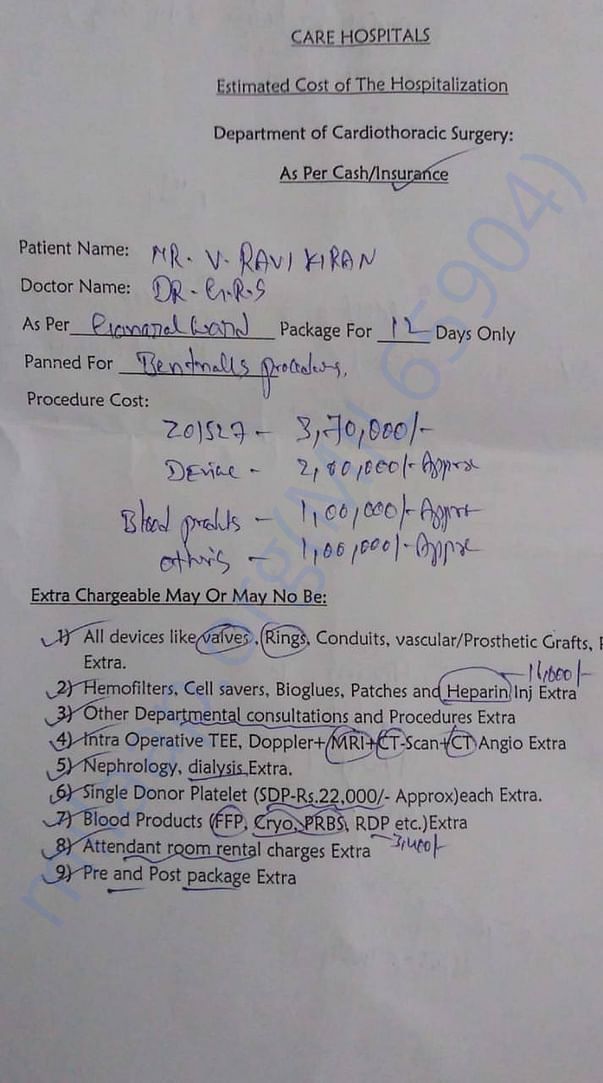 CARE HOSPITALS
Estimated Cost of The Hospitalization
Department of Cardiothoracic Surgery:
As Per Cash/Insurance
Patient Name: MR. V. RAVI KIRAN
Doctor Name: DR. G.R.S
As Per Package For 12 Days Only
Panned For
Procedure Cost:
201527 - 3,70,000/-
Device - 2,80,000/- Approx
Blood - 1,00,000/- Approx
others - 1,00,000/- Approx
Extra Chargeable May Or May No Be:
1) All devices like valves, Rings, Conduits, vascular/Prosthetic Grafts,
Extra.
2) Hemofilters, Cell savers, Bioglues, Patches and Heparin Inj Extra
3) Other Departmental consultations and Procedures Extra
4) Intra Operative TEE, Doppler+ MRI+CT-Scan+CT Angio Extra
5) Nephrology, dialysis Extra.
6) Single Donor Platelet (SDP-Rs.22,000/- Approx)each Extra.
7) Blood Products (FFP, Cryo, PRBS, RDP etc.)Extra
8) Attendant room rental charges Extra
9) Pre and Post package Extra